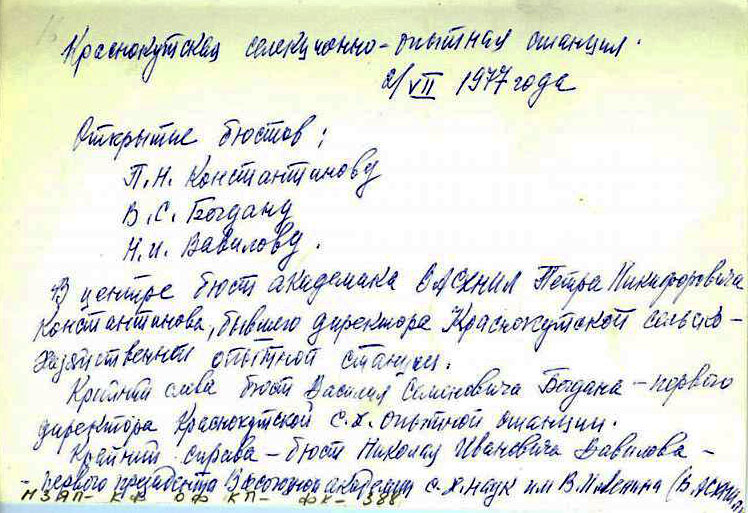 Краснокутская селекционно-опытная станция.
2/VII 1977 года
Открытие бюстов:
П.Н. Константинову
В.С. Богдану
Н.И. Вавилову.
В центре бюст академика ВАСХНИЛ Петра Никифоровича
Константинова, бывшего директора Краснокутской сельско-
хозяйственной опытной станции.
Крайний слева бюст Василия Семеновича Богдана - первого
директора Краснокутской с.х. опытной станции.
Крайний справа - бюст Николая Ивановича Вавилова -
- первого президента Всесоюзной академии с.х. наук им В.И. Ленина (ВАСХНИЛ)
НЗЯП- КФ ОФ КП- ФК- 388